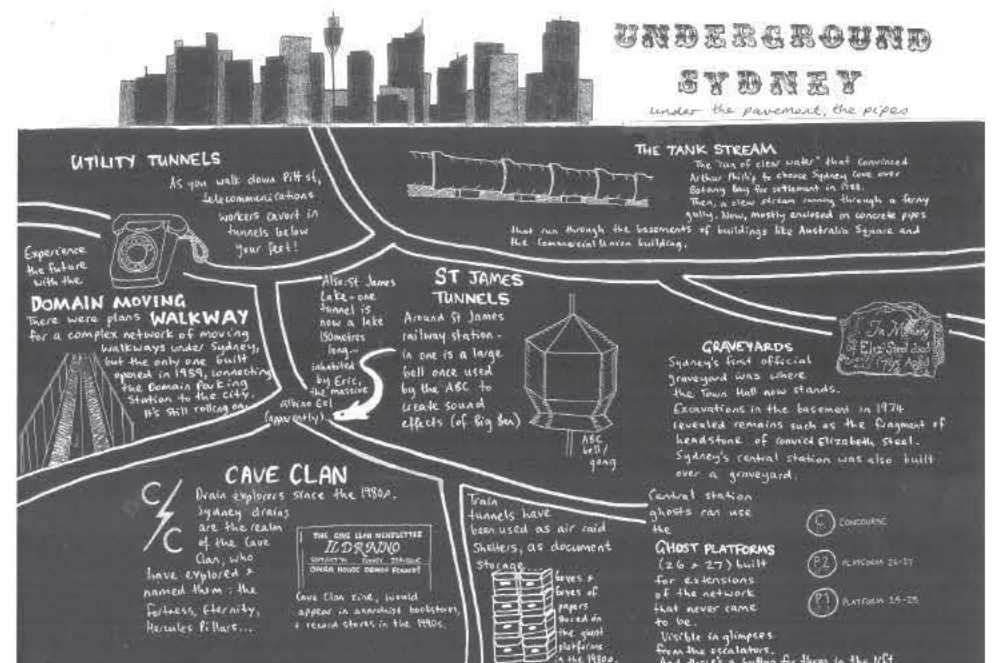 UNDERGROUND
SYDNEY
under the pavement, the pipes
UTILITY TUNNELS
As you walk down Pitt st,
telecommunications
workers cavort in
tunnels below
your feet!
THE TANK STREAM
The "run of clear water" that convinced
Arthur Philip to choose Sydney Cove over
Botany Bay for settlement in 1788.
Then, a clear stream running through a ferny
gully. Now, mostly enclosed in concrete pipes
that run through the basements of buildings like Australia Square and
the Commercial Union building.
Experience
the future
with the
DOMAIN MOVING
WALKWAY
There were plans
for a complex network of moving
walkways under Sydney,
but the only one built
opened in 1959, connecting
the Domain Parking
Station to the city.
It's still rolling on
Also: St James
Lake - one
tunnel is
now a lake
150metres
long -
inhabited
by Eric,
the massive
albino Eel
(apparently).
ST JAMES
TUNNELS
Around St James
railway station -
in one is a large
bell once used
by the ABC to
create sound
effects (of Big Ben)
ABC
bell/
gong
In Memory
Eliz Steel died
GRAVEYARDS
Sydney's first official
graveyard was where
the Town Hall now stands.
Excavations in the basement in 1974
revealed remains such as the fragment of
headstone of convict Elizabeth Steel.
Sydney's central station was also built
over a graveyard.
CAVE CLAN
Drain explorers since the 1980s.
Sydney drains
are the realm
of the Cave
Clan, who
have explored &
named them: the
Fortress, Eternity,
Hercules Pillars...
C/C
THE CAVE CLAN NEWSLETTER
IL DRAINO
OPERA HOUSE DRAIN FOUND!
Cave Clan zine, would
appear in anarchist bookstores,
& record stores in the 1990s.
Train
tunnels have
been used as air raid
shelters, as document
storage...
boxes &
boxes of
papers
stored on
the ghost
platforms
in the 1980s.
Central station
ghosts can use
the
GHOST PLATFORMS
(26 & 27) built
for extensions
of the network
that never came
to be.
Visible in glimpses
from the escalators.
And there's a button for them in the lift
C CONCOURSE
P.2 PLATFORM 26-27
P.1 PLATFORM 24-25